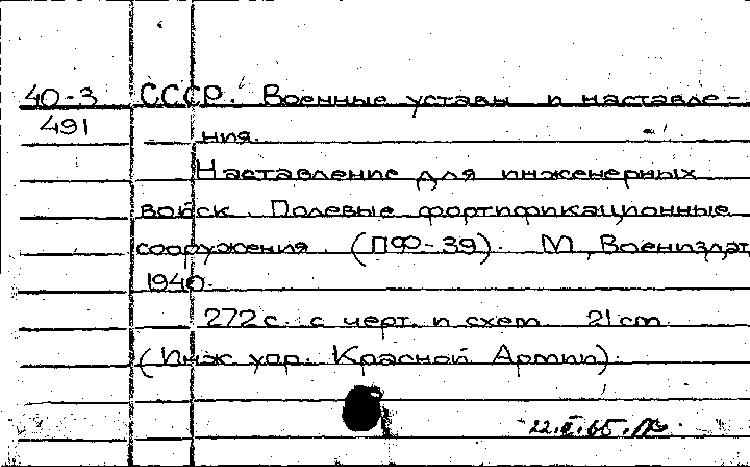 40-3 СССР. Военные уставы и наставле-
491 ния.
Наставление для инженерных
войск. Полевые фортификационные
сооружения. (ПФ-39). М, Воениздат,
1940.
272 с. с черт. и схем 21 cm
(Инж. упр. Красной Армии).